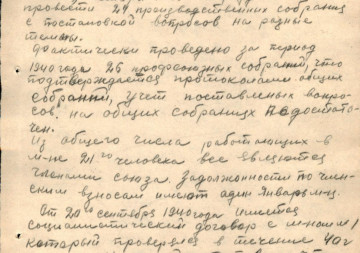 провести 29 производственных собраний
с постановкой вопросов на разные
темы.
Фактически проведено за период
1940 года 26 профсоюзных собраний, что
подтверждается протоколами общих
собраний, учет поставленых вопро-
сов, на общих собраниях недостато-
чен.
Из общего числа работающих в
м-не 21го человека все являются
членами союза. Задолженности по член-
ским взносам имеют один январь м-ц.
От 20го сентября 1940 года имеется
социалистический договор с
который проверялся в течение 40 г